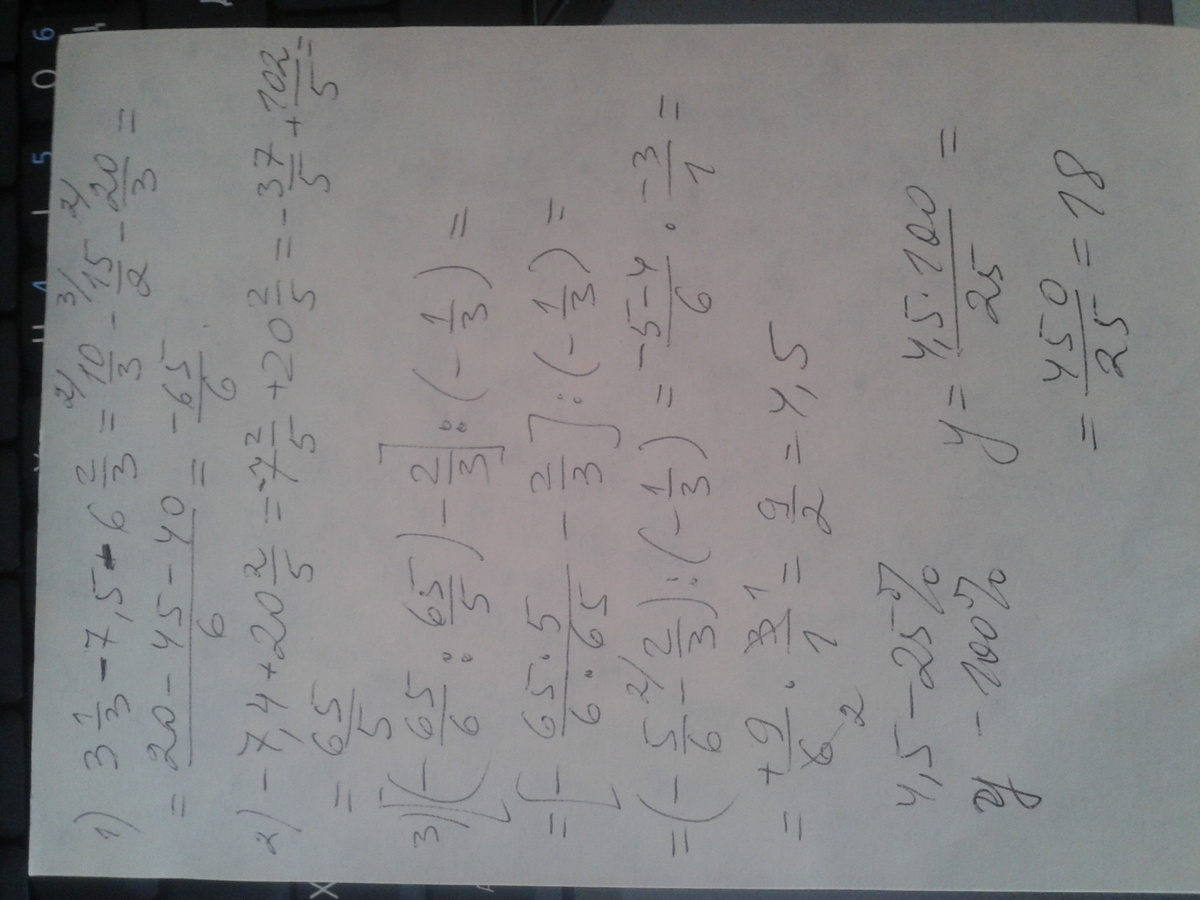 1) 3 1/3 - 7,5 - 6 2/3 = 10/3 - 15/2 - 20/3 =
= (20 - 45 - 40)/6 = -65/6
2) -7,4 + 20 2/5 = -7 2/5 + 20 2/5 = -37/5 + 102/5 =
= 65/5
3) [(-65/6 : 65/5) - 2/3] : (-1/3) =
= [-(65·5)/(6·65) - 2/3] : (-1/3) =
= (-5/6 - 2/3) : (-1/3) = (-5-4)/6 · -3/1 =
= +9/6 · 3/1 = 9/2 = 4,5
4,5 - 25%
y - 100%
y = (4,5·100)/25 =
= 450/25 = 18